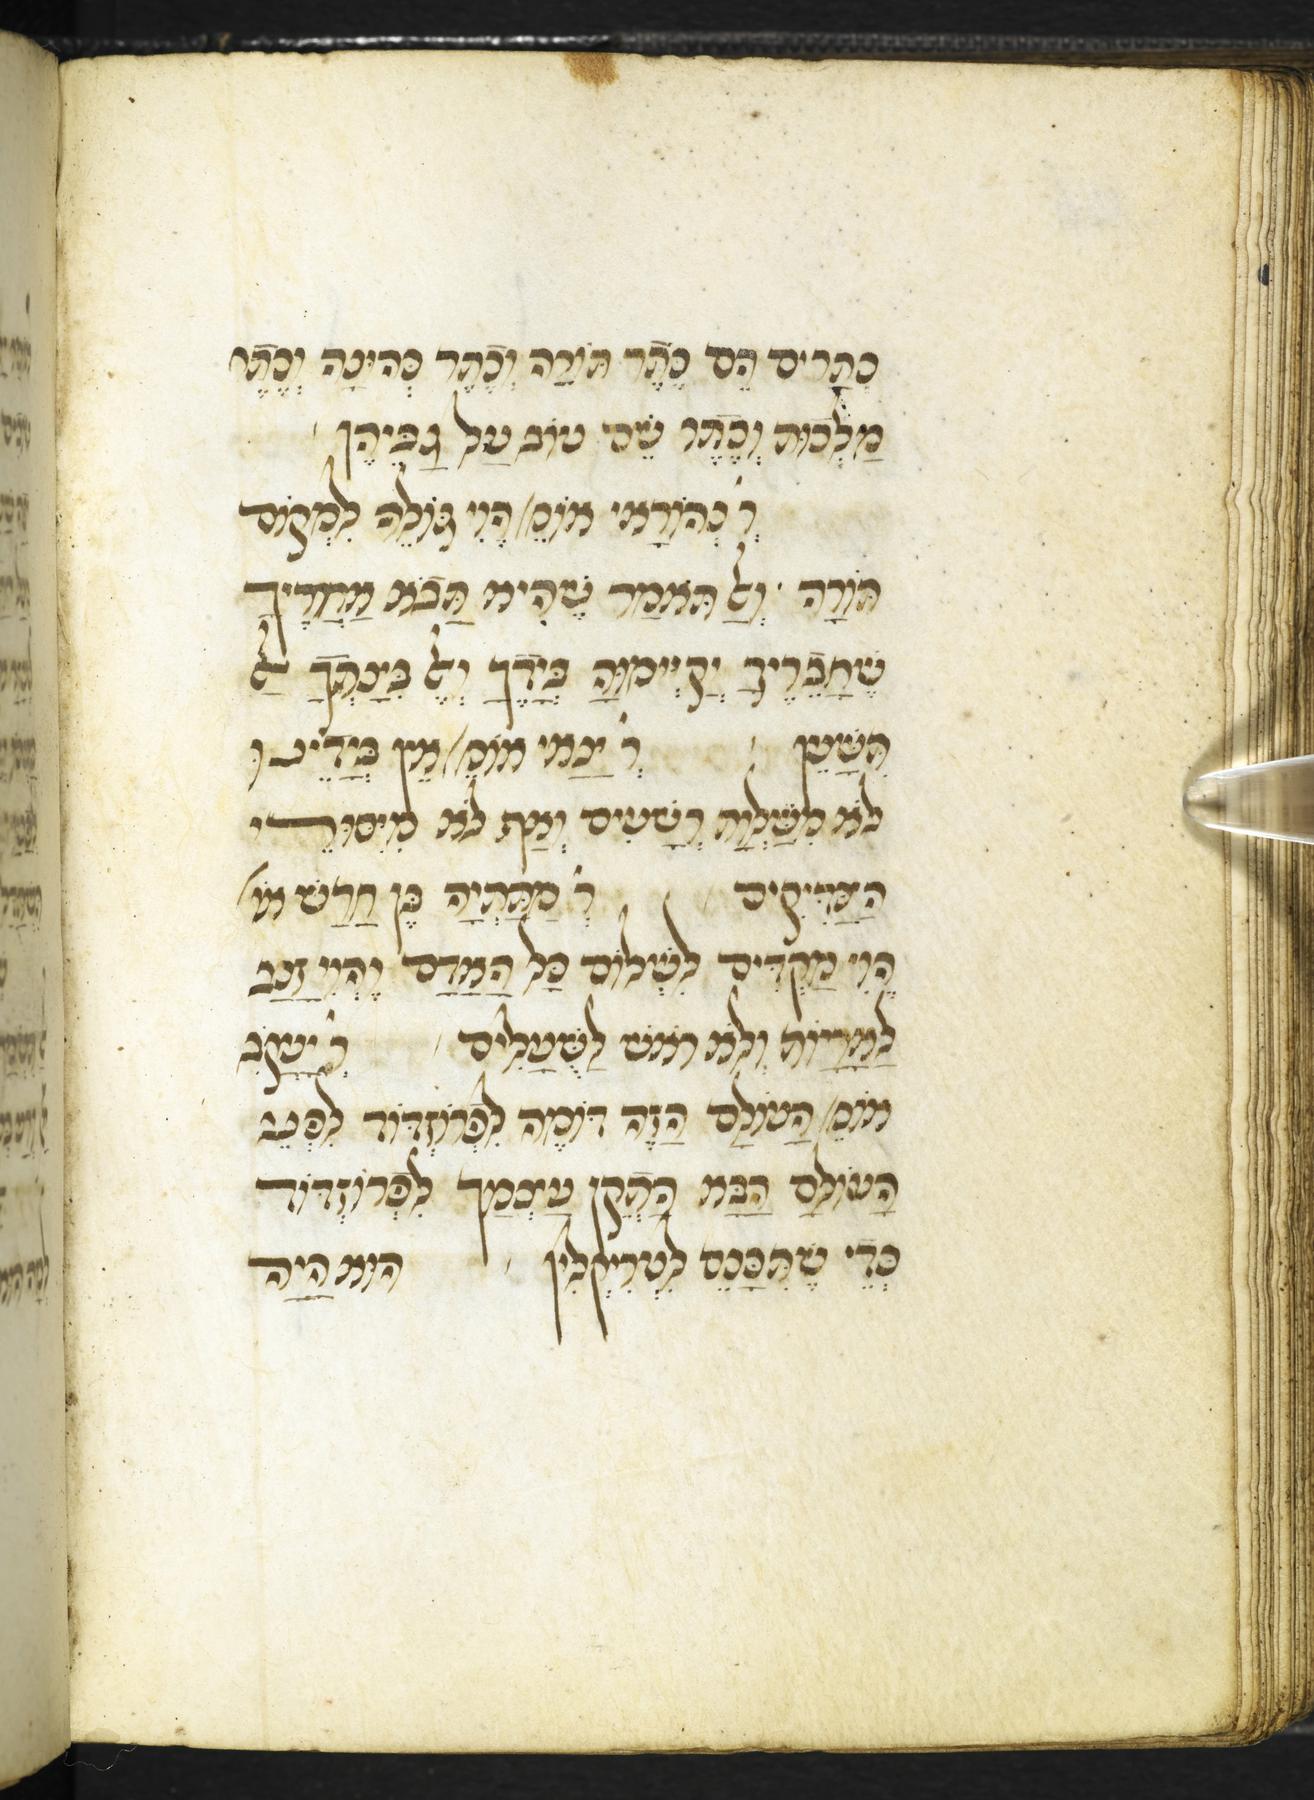 כְּתָרִים הֵם כֶּתֶר תּוֹרָה וְכֶתֶר כְּהוּנָּה וְכֶתֶר
מַלְכוּת וְכֶתֶר שֵׁם טוֹב עַל גַּבֵּיהֶן
ר' נְהוֹרָאי אוֹמֵ' הֱוֵי גּוֹלֶה לִמְקוֹם
תּוֹרָה · וְאַל תֹּאמַר שֶׁהִיא תָּבֹא אַחֲרֶיךָ
שֶׁחֲבֵרֶיךָ יְקַיְּימוּהָ בְּיָדֶךָ וְאֶל בִּינָתְךָ אַל
תִּשָּׁעֵן ר' יַנַּאי אוֹמֵ' אֵין בְּיָדֵינוּ
לֹא מִשַּׁלְוַת רְשָׁעִים וְאַף לֹא מִיִּסּוּרֵי
הַצַּדִּיקִים ר' מַתִּתְיָה בֶּן חָרָשׁ אוֹ'
הֱוֵי מַקְדִּים לִשְׁלוֹם כָּל הָאָדָם וֶהֱוֵי זָנָב
לָאֲרָיוֹת וְלֹא רֹאשׁ לַשֻּׁעָלִים ר' יַעֲקֹב
אוֹמֵ' הָעוֹלָם הַזֶּה דּוֹמֶה לִפְרוֹזְדּוֹד לִפְנֵי
הָעוֹלָם הַבָּא הַתְקֵן עַצְמָךְ לִפְּרוֹזְדּוֹד
כְּדֵי שֶׁתִּכָּנֵס לִטְרִיקְלִין הוּא הָיָה